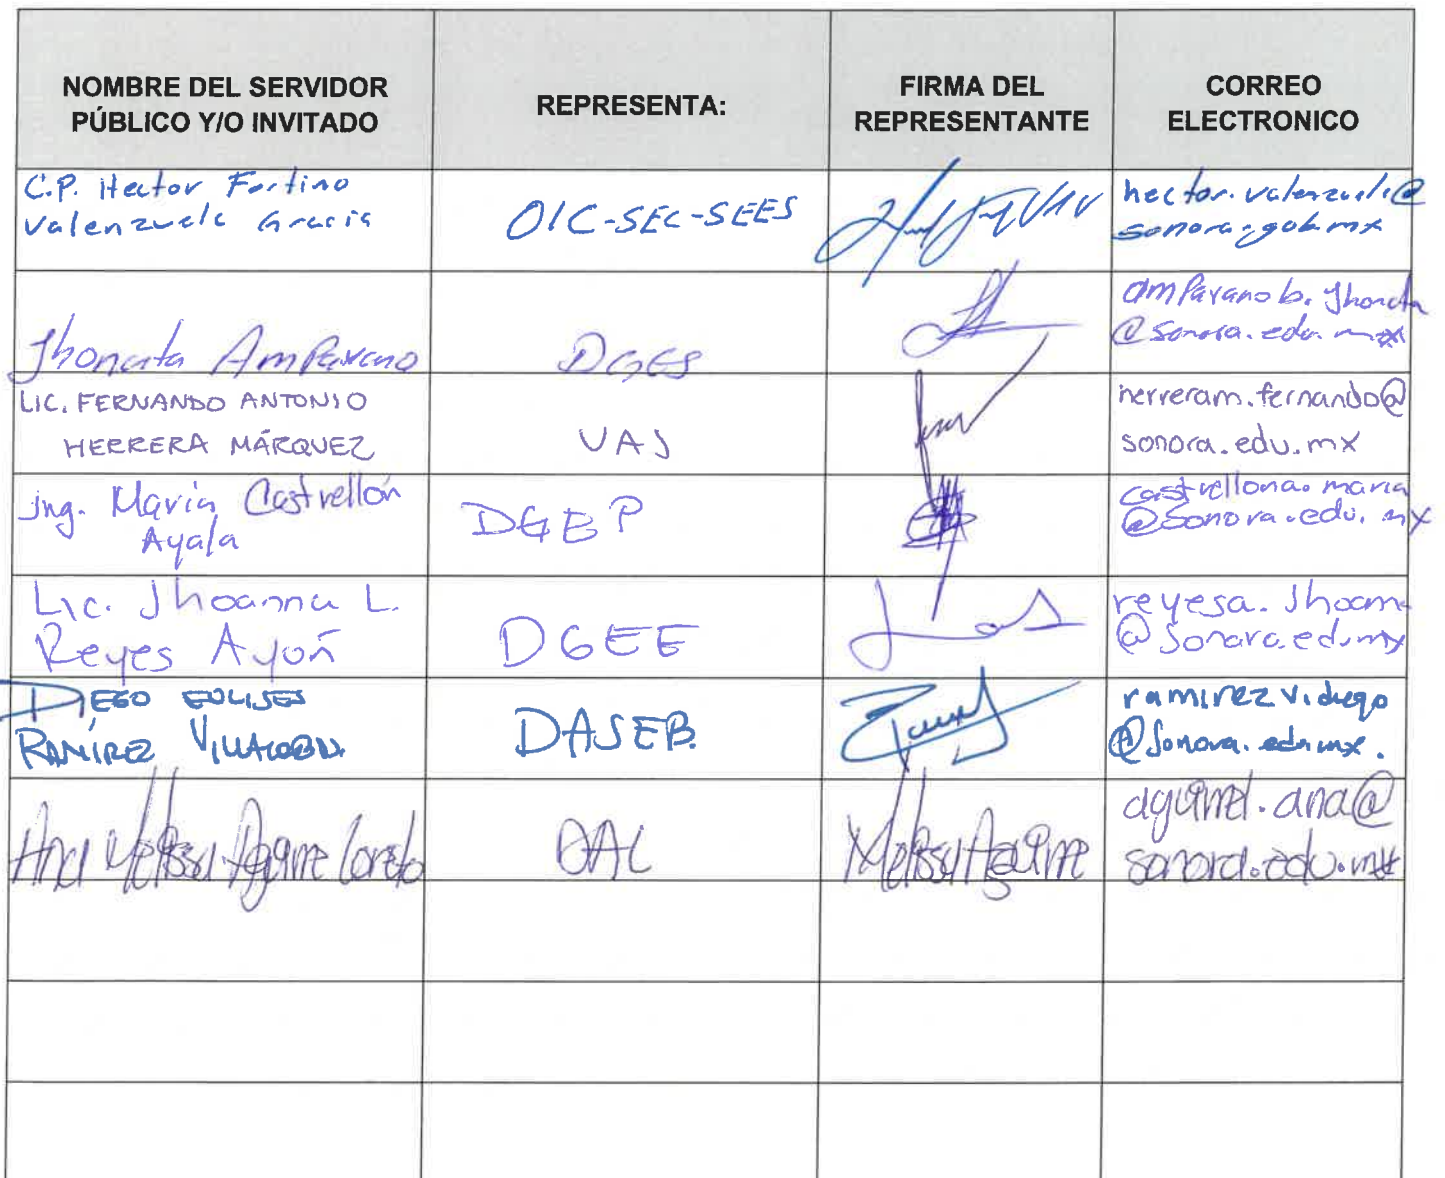 NOMBRE DEL SERVIDOR
PÚBLICO Y/O INVITADO
REPRESENTA:
FIRMA DEL
REPRESENTANTE
CORREO
ELECTRONICO
C.P. Hector Fortino
Valenzuela Gracia
OIC-SEC-SEES
hector.valenzuela@
sonora.gob.mx
Jhonata Amparano
DGES
amparanob.Jhonata
@sonora.edu.mx
LIC. FERNANDO ANTONIO
HERRERA MÁRQUEZ
UAJ
herreram.fernando@
sonora.edu.mx
Ing. María Castrellón
Ayala
DGBP
castrellona.maria
@sonora.edu.mx
Lic. Jhoanna L.
Reyes Ayón
DGEE
reyesa.Jhoann
@sonora.edu.mx
DIEGO EULISES
RAMÍREZ
DASEB.
ramirezv.diego
@sonora.edu.mx.
Ana Melissa Aguirre Loreto
Melissa Aguirre
aguirrel.ana@
sonora.edu.mx